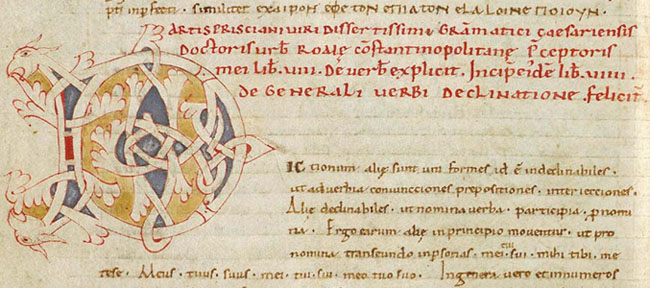 p̄ts inpfecti . similitet exairon εφε τον επιατον ελαιοινε ποιουν .
ARTIS PRISCIANI VIRI DISSERTISSIMI GRĀMATICI CAESARIENSIS
DOCTORIS URB ROMĘ CŌSTANTINOPOLITANĘ P̄CEPTORIS
MEI LIB . VIII . DE VERB EXPLICIT . INCIP EIVSDĒ LIB . VIIII .
DE GENERALI VERBI DECLINATIONE . FELICIT
DIctionum alię sunt uniformes id ē indeclinabiles .
ut aduerbia coniunctiones prepositiones . interiectiones .
Alię declinabiles . ut nomina uerba . participia . pronomi
na . Ergo earum alię in principio mouentur . ut pro
nomina transeundo in psonas . mei . sui . mihi tibi . me
te se . Meus . tuus . suus . mei . tui . sui . meo tuo suo . In genera uero et in numeros